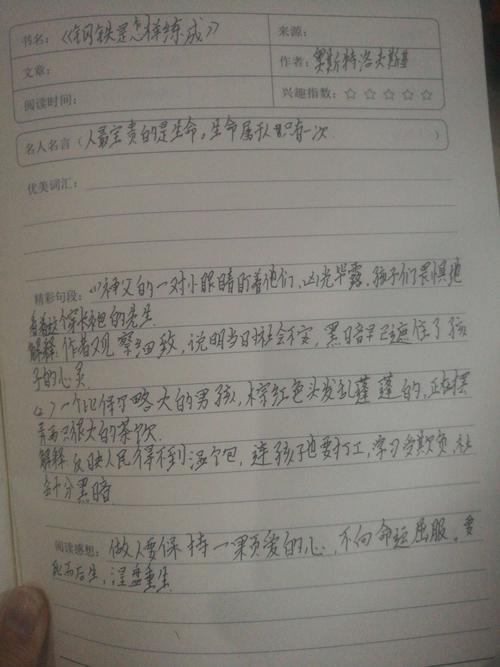 书名：《钢铁是怎样练成》
来源：
文章：
作者：奥斯特洛夫斯基
阅读时间：
兴趣指数：☆☆☆☆☆
名人名言（人最宝贵的是生命。生命属于人只有一次）
优美词汇：
精彩句段：(1)神父的一对小眼睛盯着他们，凶光毕露，孩子们畏惧地
看着这个穿长袍的先生
解释：作者观察细致，说明当时社会不安，黑暗早已遮住了孩
子的心灵
(2)一个比保尔略大的男孩，棕红色头发乱蓬蓬的，正在摆
弄两只很大的茶炊
解释：反映人民得不到温饱，连孩子也要打工，受欺负 社
会十分黑暗
阅读感想：做人要保持一颗爱的心，不向命运屈服。要
死而后生，涅盘重生